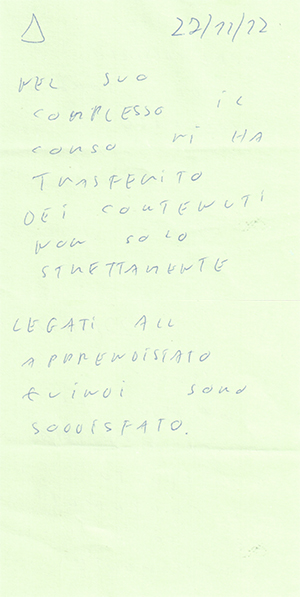 22/11/12
NEL SUO
COMPLESSO IL
CORSO MI HA
TRASFERITO
DEI CONTENUTI
NON SOLO
STRETTAMENTE
LEGATI ALL
APPRENDISTATO
QUINDI SONO
SODDISFATO.